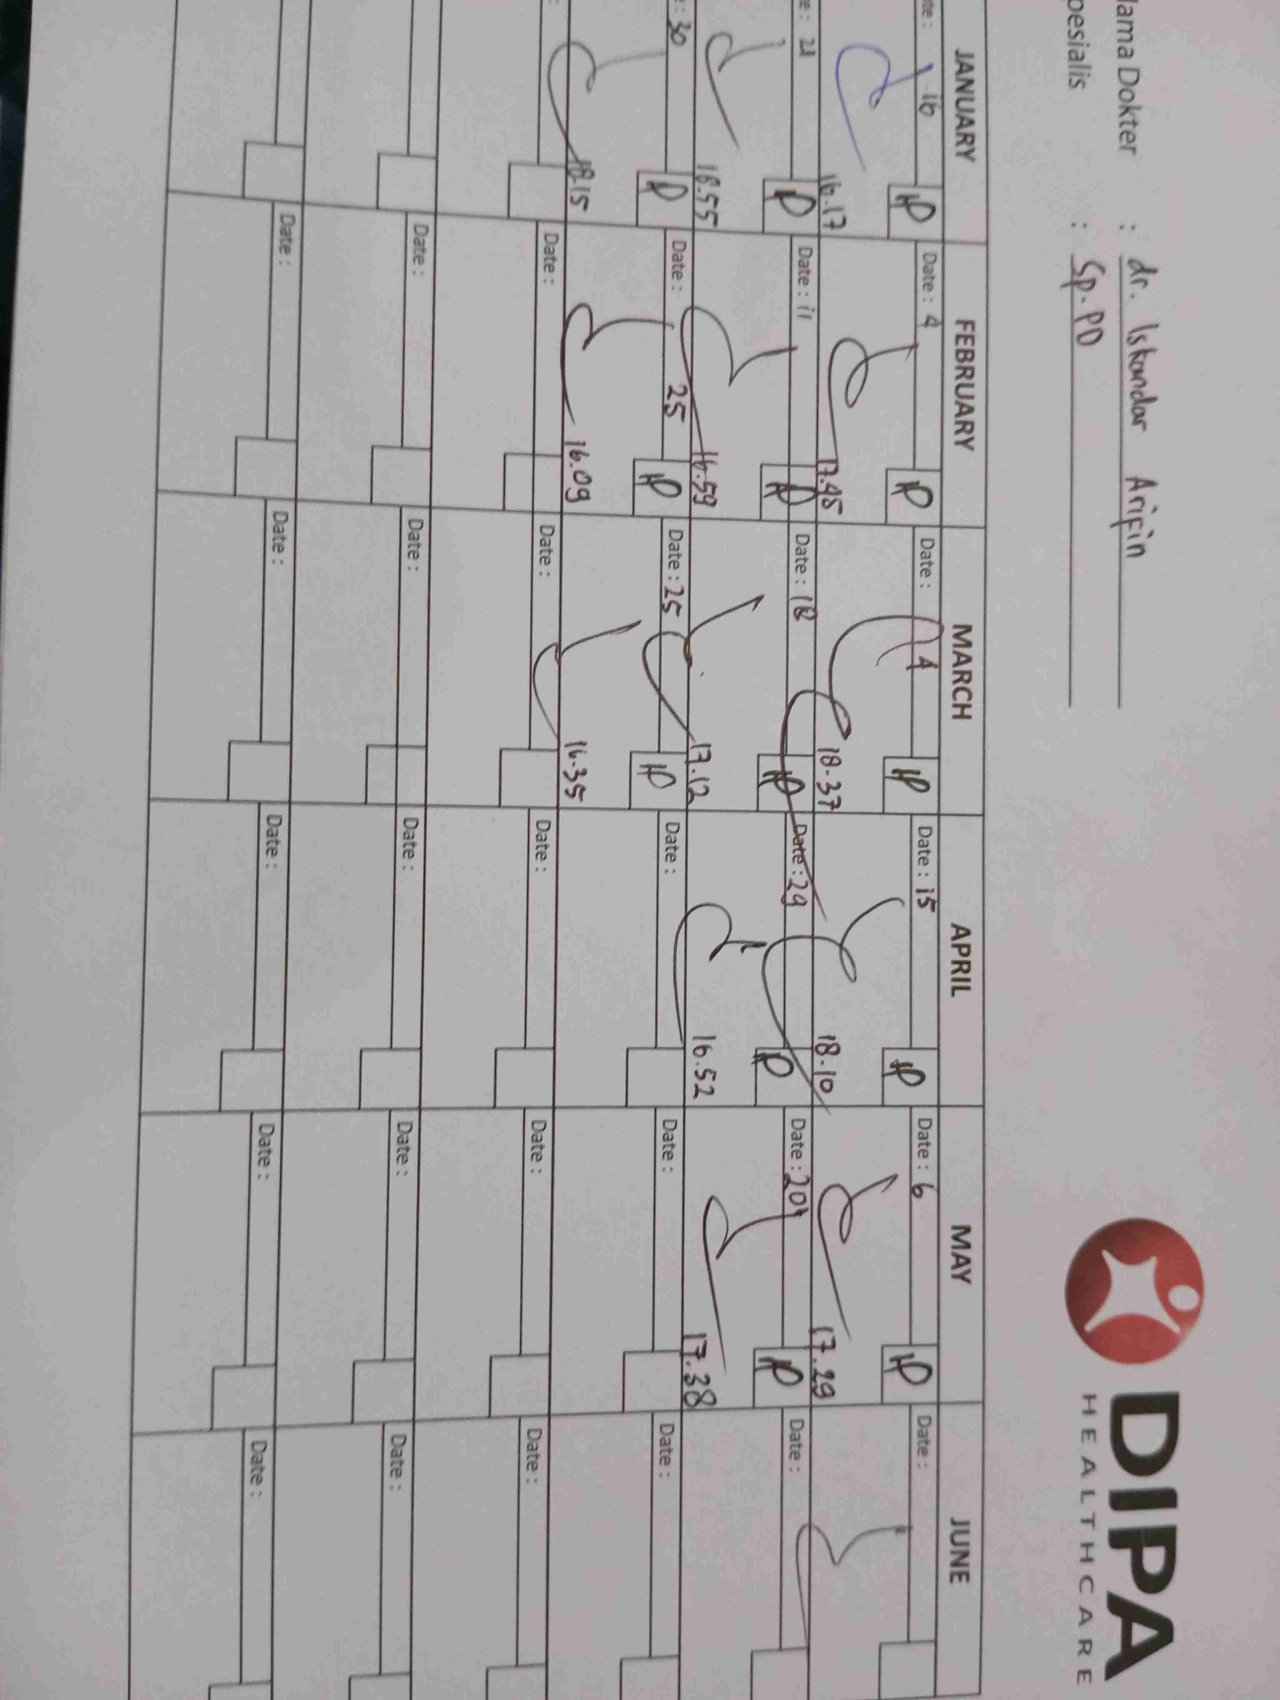 DIPA
HEALTHCARE
ama Dokter : dr. Iskandar Arifin
pesialis : Sp.PD
JANUARY FEBRUARY MARCH APRIL MAY JUNE
te: 16 Date: 4 Date: 4 Date: 15 Date: 6 Date:
16.17 17.45 18.37 18.10 17.29
e: 21 Date: 11 Date: 18 Date: 29 Date: 20 Date:
18.55 16.59 17.12 16.52 17.38
: 30 Date: 25 Date: 25 Date: Date: Date:
18.15 16.09 16.35
: Date: Date: Date: Date: Date:
Date: Date: Date: Date: Date:
Date: Date: Date: Date: Date: